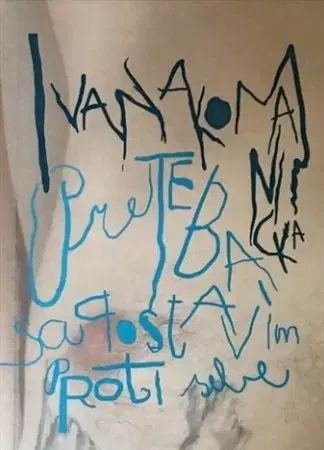 IVANA KOMANICKA
PreTEBA
sa PostAVím
PROTI sebe